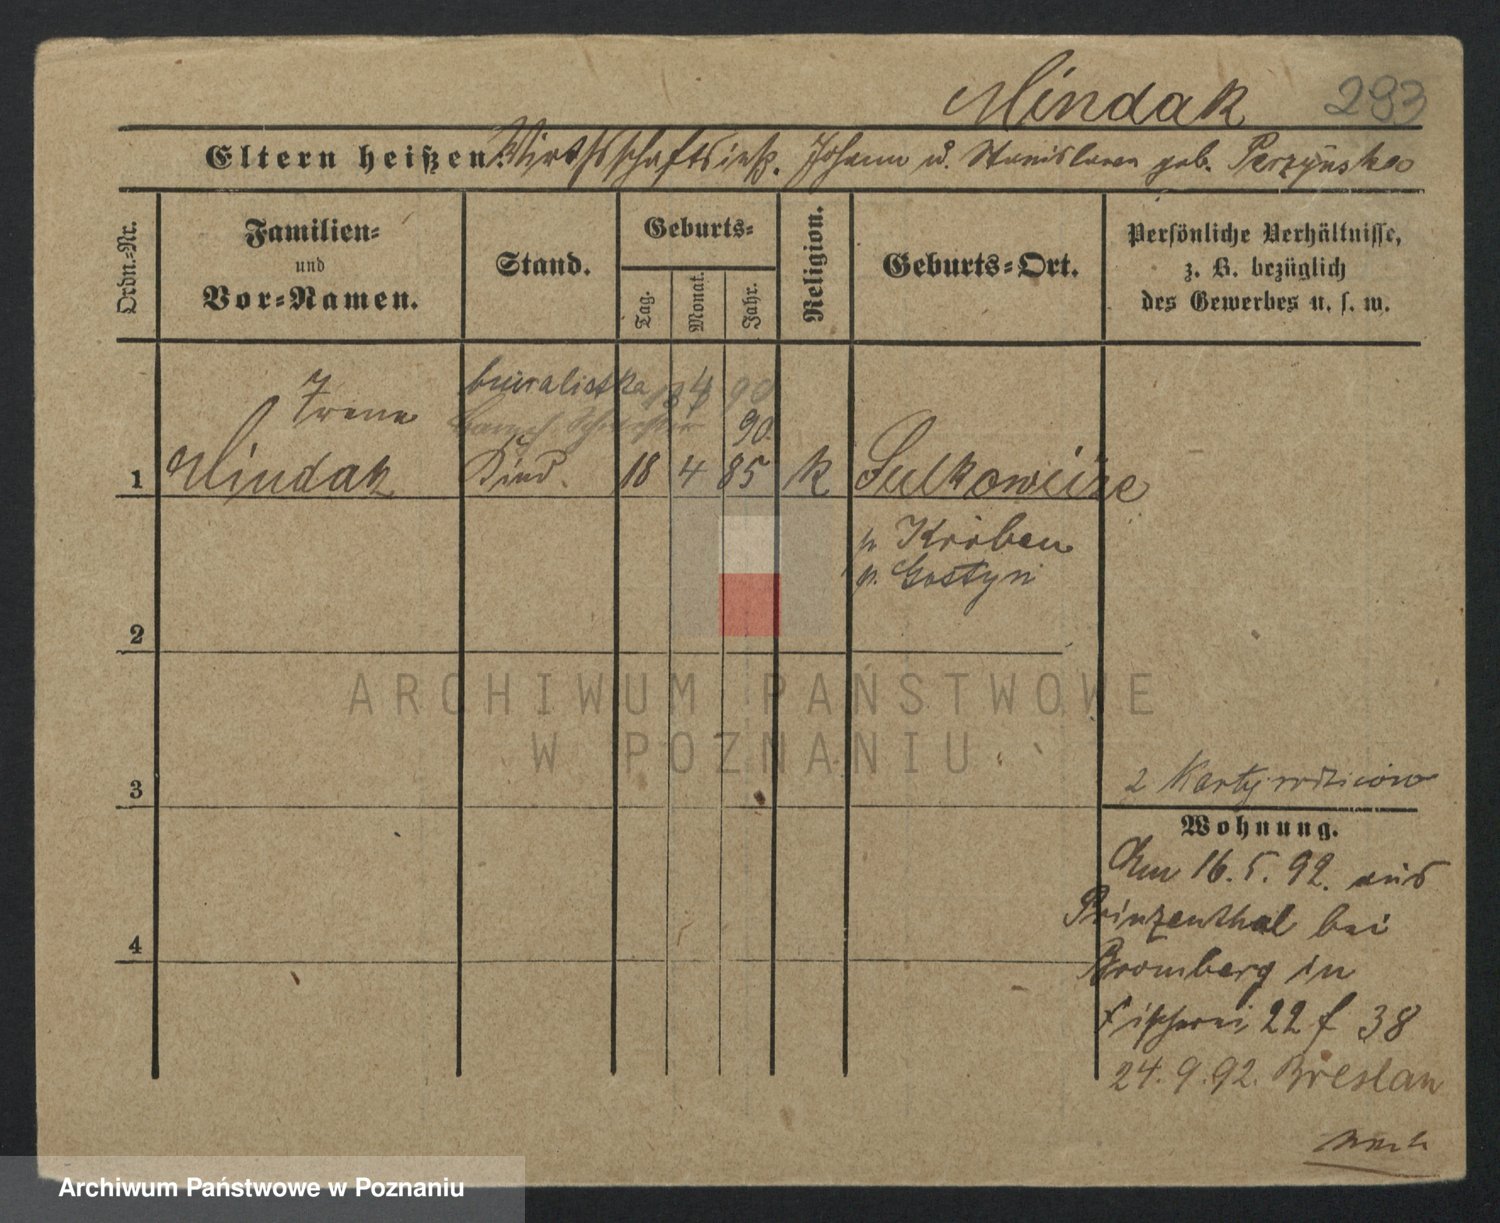 Mindak 293
Eltern heißen: Wirthschaftsinsp. Johann u. Stanislawa geb. Perzyńska
Ordn.-Nr.
Familien-
und
Vor-Namen.
Stand.
Geburts-
Tag.
Monat.
Jahr.
Religion.
Geburts-Ort.
Persönliche Verhältnisse,
z. B. bezüglich
des Gewerbes u. s. w.
biuralistka 18 4 90
Irene
90
1 Mindak Kind. 18 4 85 k Sulkowice
p Kröben
p. Gostyn
2
ARCHIWUM PAŃSTWOWE
W POZNANIU
3
2 Karty rodziców
Wohnung.
Am 16. 5. 92. aus
Prinzenthal bei
4
Bromberg in
Fischerei 22 f 38
24. 9. 92. Breslau
Archiwum Państwowe w Poznaniu